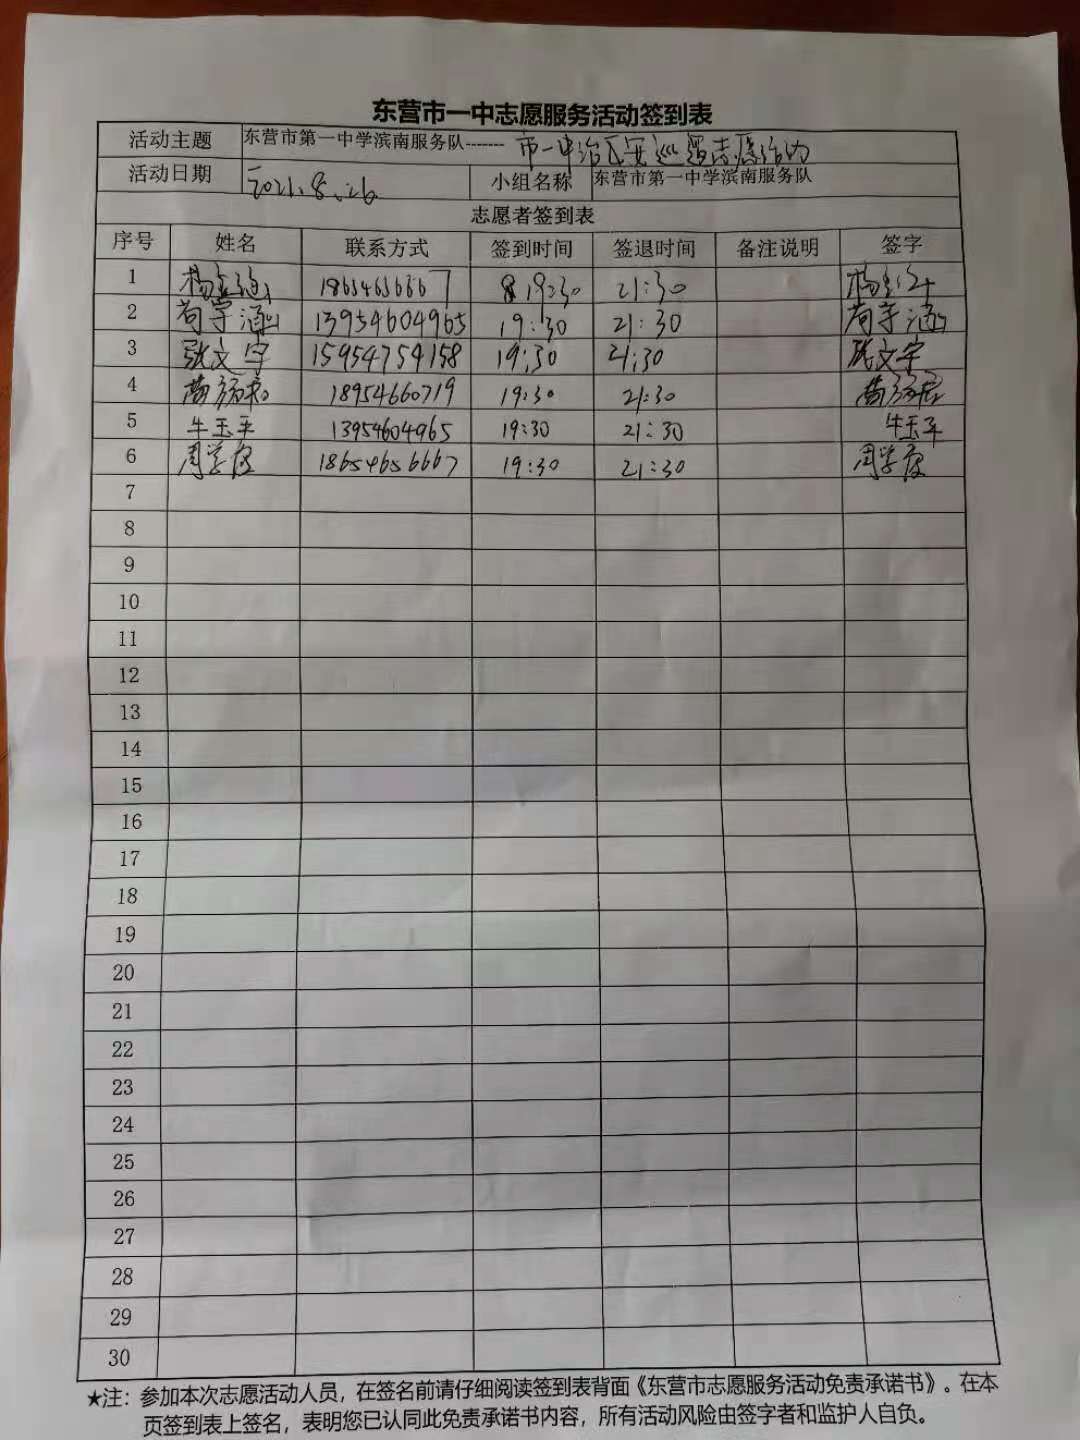 东营市一中志愿服务活动签到表
活动主题 东营市第一中学滨南服务队------- 市一中治区安巡逻志愿活动
活动日期 2021.8.26 小组名称 东营市第一中学滨南服务队
志愿者签到表
序号 姓名 联系方式 签到时间 签退时间 备注说明 签字
1 杨 18654656667 19:30 21:30 杨
2 荀宇涵 13954604965 19:30 21:30 荀宇涵
3 张文宇 15954754158 19:30 21:30 张文宇
4 18954660719 19:30 21:30
5 牛玉平 13954604965 19:30 21:30 牛玉平
6 周学俊 18654656667 19:30 21:30 周学俊
7
8
9
10
11
12
13
14
15
16
17
18
19
20
21
22
23
24
25
26
27
28
29
30
★注：参加本次志愿活动人员，在签名前请仔细阅读签到表背面《东营市志愿服务活动免责承诺书》。在本
页签到表上签名，表明您已认同此免责承诺书内容，所有活动风险由签字者和监护人自负。